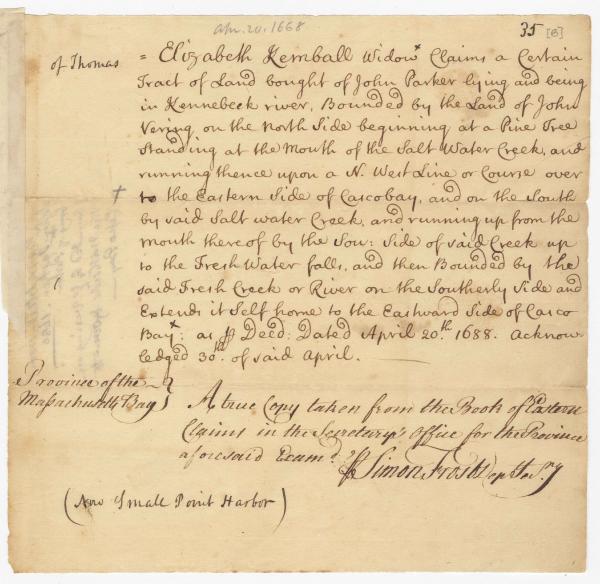 apr. 20. 1668
35 [6]
of Thomas = Elizabeth Kemball Widow x Claims a Certain
Tract of Land bought of John Parker lying and being
in Kennebeck river, Bounded by the Land of John
Vering, on the North Side beginning at a Pine Tree
Standing at the Mouth of the Salt Water Creek, and
running thence upon a N. West Line or Course over
to the Eastern Side of Cascobay, and on the South
by said Salt water Creek, and running up from the
mouth thereof by the Sou: Side of said Creek up
to the Fresh Water falls, and then Bounded by the
said Fresh Creek or River on the Southerly Side and
Extends it Self home to the Eastward Side of Casco
Bay x: as ⅌ Deed: Dated April 20.th 1688. Acknow
ledged 30th. of said April.
Province of the
Massachusetts Bay }
A true Copy taken from the Book of Eastern
Claims in the Secretary's Office for the Province
aforesaid Exam.d
⅌ Simon Frost Dep Sec.ry
(Now Small Point Harbor)